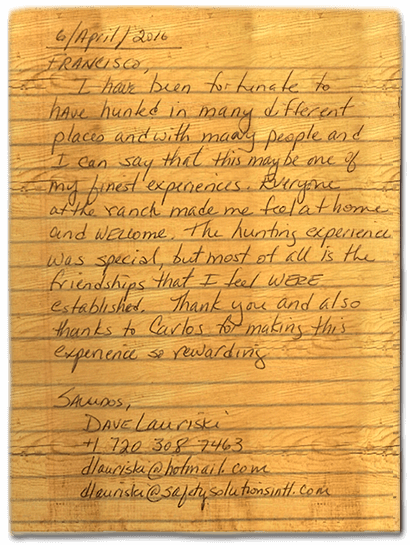 6/April/2016
FRANCISCO,
I have been fortunate to
have hunted in many different
places and with many people and
I can say that this maybe one of
my finest experiences. Everyone
at the ranch made me feel at home
and welcome. The hunting experience
was special, but most of all is the
friendships that I feel WERE
established. Thank you and also
thanks to Carlos for making this
experience so rewarding
SALUDOS,
DAVE Lauriski
+1 720 308 7463
dlauriski@hotmail.com
dlauriski@safetysolutionsintl.com